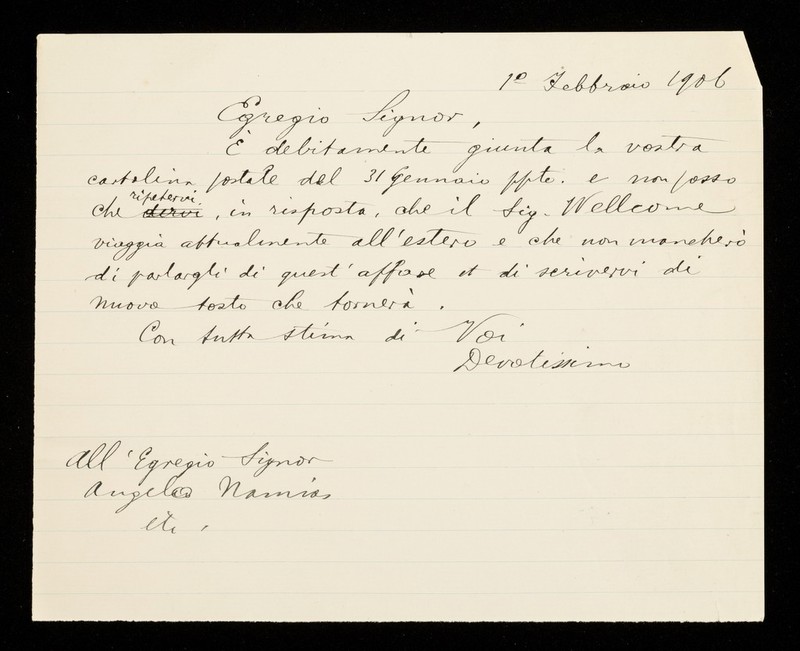 1º Febbraio 1906
Egregio Signor,
È debitamente giunta la vostra
cartolina postale del 31 Gennaio ppto. e non posso
ripetervi
che dirvi, in risposta, che il Sig. Wellcome
viaggia attualmente all'estero e che non mancherò
di parlargli di quest'affare et di scrivervi di
nuovo tosto che tornerà.
Con tutta stima di Voi
Devotissimo
All'Egregio Signor
Angelo Namias
etc,